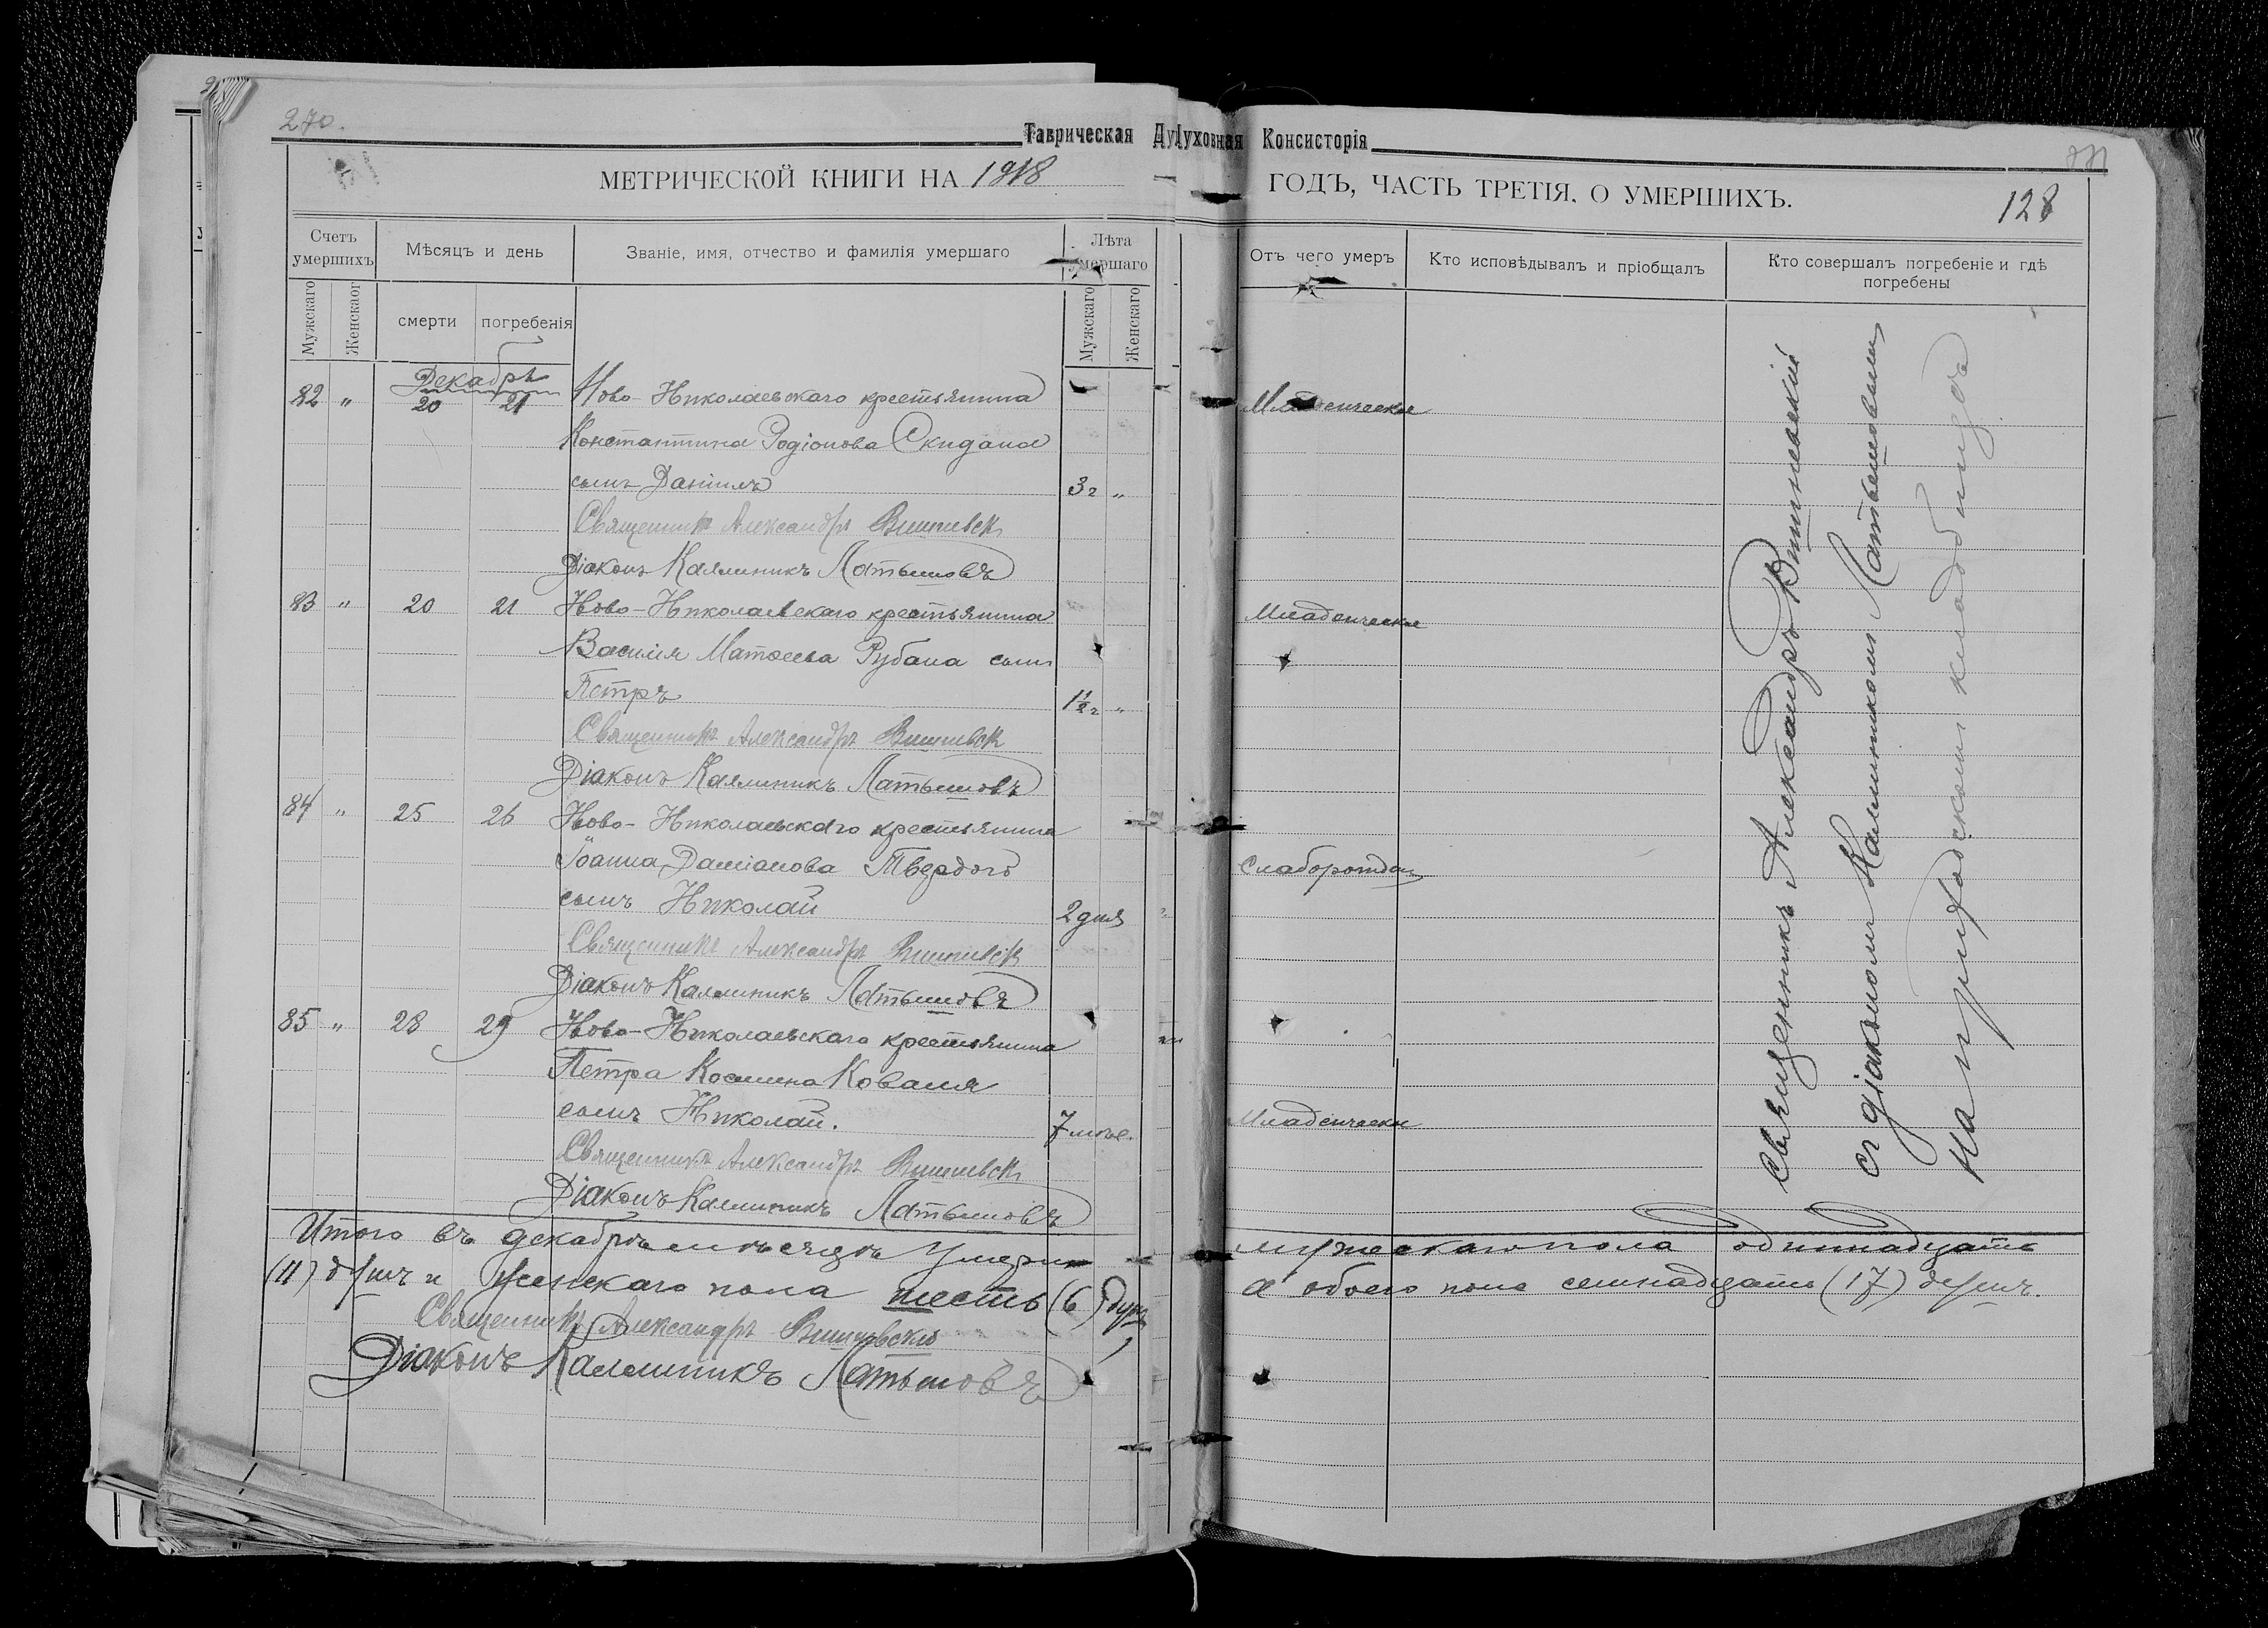 270.
Таврическая Духовная Консисторія
МЕТРИЧЕСКОЙ КНИГИ НА 1918 ГОДЪ, ЧАСТЬ ТРЕТІЯ, О УМЕРШИХЪ.
128
Счетъ умершихъ
Мѣсяцъ и день
Званіе, имя, отчество и фамилія умершаго
Лѣта умершаго
Отъ чего умеръ
Кто исповѣдывалъ и пріобщалъ
Кто совершалъ погребеніе и гдѣ погребены
Мужскаго
Женскаог
смерти
погребенія
Мужскаго
Женскаго
Декабрь
82 " 20 21 Ново-Николаевскаго крестьянина Младенческ
Константина Родіонова Скидана
сынъ Даніилъ 3 г "
Священникъ Александръ Вишневск
Діаконъ Каллиникъ Латышовъ
83 " 20 21 Ново-Николаевскаго крестьянина Младенческ
Василія Матѳеева Рубана сынъ
Петръ 1½ г "
Священникъ Александръ Вишневск
Діаконъ Каллиникъ Латышовъ
84 " 25 26 Ново-Николаевскаго крестьянина
Іоанна Даміанова Твердого Слаборожден
сынъ Николай 2 дня
Священникъ Александръ Вишневск
Діаконъ Каллиникъ Латышовъ
85 " 28 29 Ново-Николаевскаго крестьянина
Петра Косьмина Коваля
сынъ Николай. 7 мѣс. Младенческ
Священникъ Александръ Вишневск
Діаконъ Каллиникъ Латышовъ
Священникъ Александръ Вишневскій
съ діакономъ Каллиникомъ Латышовымъ
на приходскомъ кладбищѣ
Итого въ декабрѣ мѣсяцѣ умерло мужескаго пола одиннадцать
(11) душъ и женскаго пола шесть (6) душъ а обоего пола семнадцать (17) душъ.
Священникъ Александръ Вишневскій
Діаконъ Каллиникъ Латышовъ